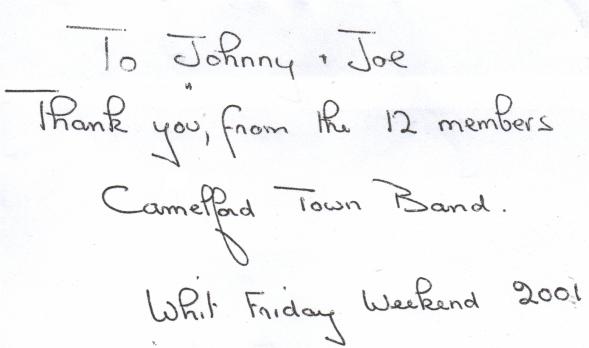 To Johnny + Joe
Thank you, from the 12 members
Camelford Town Band.
Whit Friday Weekend 2001